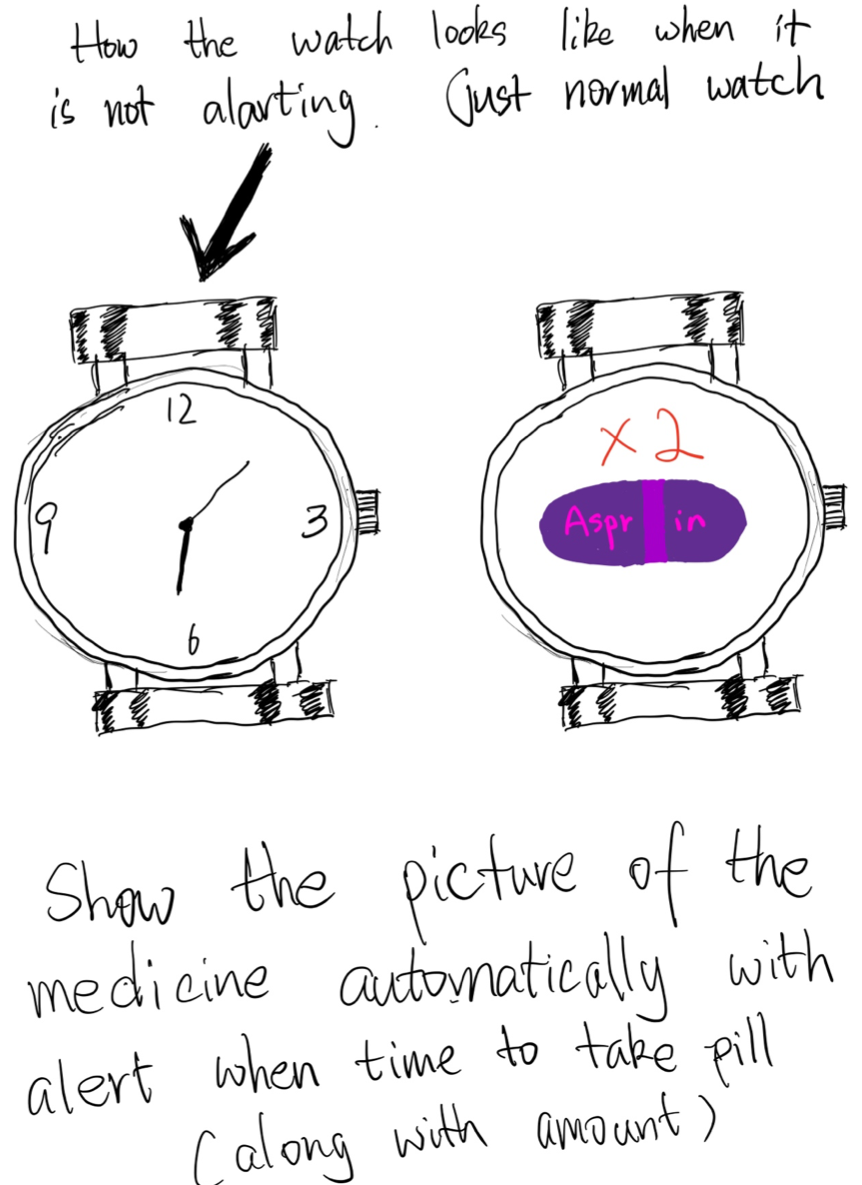 How the watch looks like when it
is not alarting. (just normal watch
12
9
3
6
x 2
Aspr in
Show the picture of the
medicine automatically with
alert when time to take pill
(along with amount)